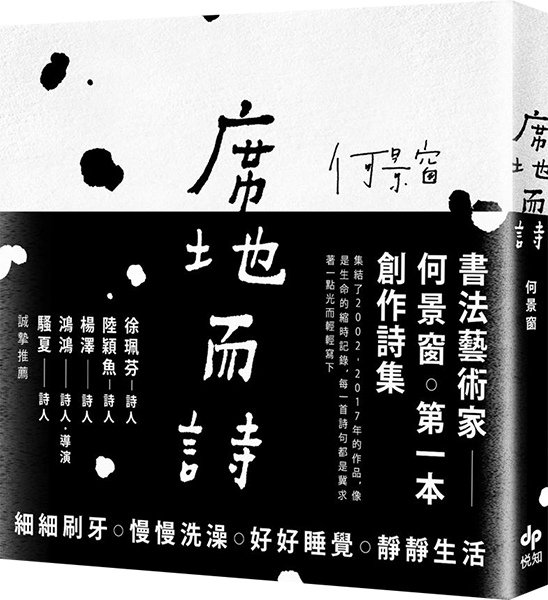 席地而詩
何景窗
書法藝術家——
何景窗。第一本
創作詩集
集結了2002-2017年的作品，像
是生命的縮時記錄，每一首詩句都是冀求
著一點光而輕輕寫下
徐珮芬－詩人
陸穎魚－詩人
楊澤——詩人
鴻鴻——詩人・導演
騷夏——詩人
誠摯推薦
細細刷牙。慢慢洗澡。好好睡覺。靜靜生活
席地而詩
何景窗
dp
悅知